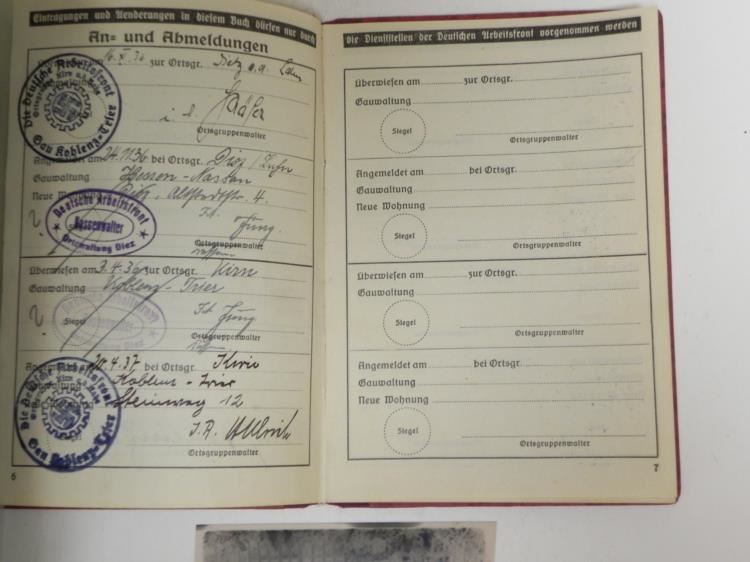 Eintragungen und Aenderungen in diesem Buch dürfen nur durch
An- und Abmeldungen
zur Ortsgr. Diez a.d. Lahn
Ortsgruppenwalter
Die Deutsche Arbeitsfront
Gau Koblenz-Trier
Angemeldet am 24.11.36 bei Ortsgr. Diez/Lahn
Gauwaltung Hessen-Nassau
Neue Wohnung Diez, Altstadtstr. 4.
Jung
Ortsgruppenwalter
Deutsche Arbeitsfront
Kassenwalter
Ortswaltung Diez
Überwiesen am 3.4.36 zur Ortsgr. Kirn
Gauwaltung Koblenz-Trier
Siegel
Jung
Ortsgruppenwalter
Angemeldet am 20.4.37 bei Ortsgr. Kirn
Koblenz-Trier
Steinweg 12
I.A.
Ortsgruppenwalter
Die Deutsche Arbeitsfront
Gau Koblenz-Trier
6
die Dienststellen der Deutschen Arbeitsfront vorgenommen werden
Überwiesen am zur Ortsgr.
Gauwaltung
Siegel
Ortsgruppenwalter
Angemeldet am bei Ortsgr.
Gauwaltung
Neue Wohnung
Siegel
Ortsgruppenwalter
Überwiesen am zur Ortsgr.
Gauwaltung
Siegel
Ortsgruppenwalter
Angemeldet am bei Ortsgr.
Gauwaltung
Neue Wohnung
Siegel
Ortsgruppenwalter
7